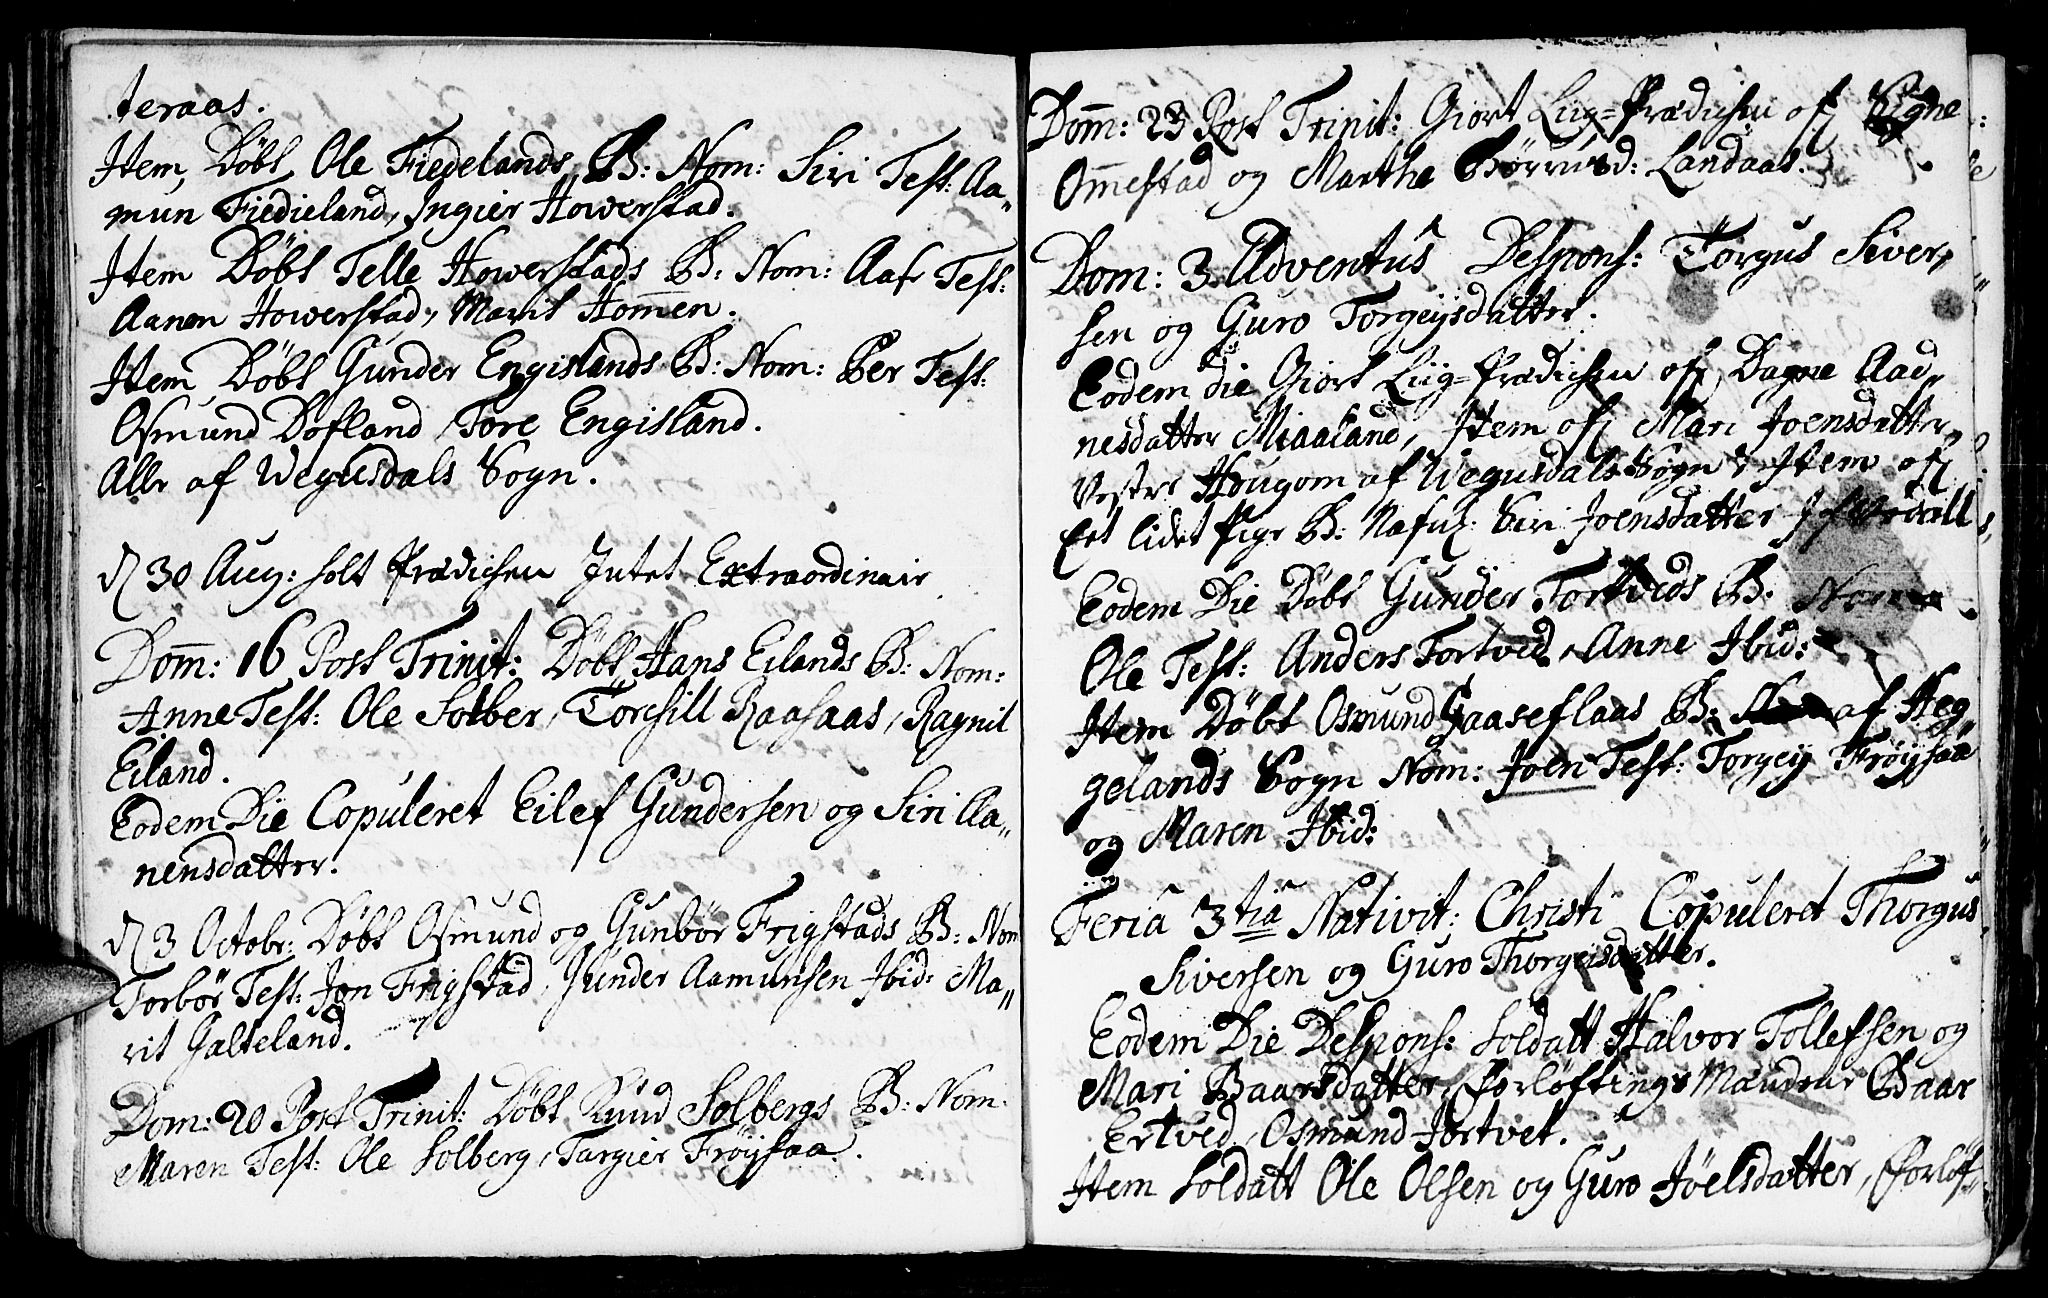 teraas.
Item, Döbt Ole Fiedelands B: Nom: Siri Test: Aa„
mun Fiedieland, Ingier Howerstad.
Item Döbt Telle Howerstads B: Nom: Aaf Test:
Aanen Howerstad, Marit Hom̄en.
Item Döbt Gunder Engislands B: Nom: Per Test:
Osmund Döfland, Tore Engisland.
Alle af Wegusdals Sogn.
d 30 Aug: holt Prædichen Intet Extraordinair
Dom̄: 16 Post Trinit: Döbt Hans Eilands B: Nom:
Anne Test: Ole Solber, Torchill Raasaas, Ragnil
Eiland.
Eodem Die Copuleret Eilef Gundersen og Siri Aa„
nensdatter.
d 3 Octobr: Döbt Osmund og Gunbör Frigstads B: Nom
Torbör Test: Jon Frigstad, Gunder Aamunsen Ibid: Ma„
rit Galteland.
Dom: 20 Post Trinit: Döbt Knud Solbergs B: Nom:
Maren Test: Ole Solberg, Targier Fröysaa.
Dom̄: 23 Post Trinit: Giort Liig=Prædichen ofr Signe
Om̄estad og Marthe Landaas.
Dom: 3 Adventus Despons: Torgus Siver„
sen og Guro Torgeysdatter.
Eodem die Giort Liig=Prædichen ofr Dagne Aad„
nesdatter Miaaland, Item ofr Mari Joensdatter
Vestre Hougom af Wegusdals Sogn, Item ofr
Eet lidet Pige B: Nafnl: Siri Joensdatter
Eodem Die Döbt Gunder Tortveds B: Nom
Ole Test: Anders Tortved, Anne Ibid:
Item Döbt Osmund Gaaseflaas B: af Heg„
gelands Sogn Nom: Joen Test: Torgey Fröysaa
og Maren Ibid:
Feria 3tia Nativit: Christi Copuleret Thorgus
Siversen og Guro Thorgeisdatter.
Eodem Die Despons: Soldatt Halvor Tollefsen og
Mari Baarsdatter, Forløftnings Mændene Baar
Ertved, Osmund Tortvet.
Item Soldatt Ole Olsen og Guro Jöelsdatter, Forlöf„